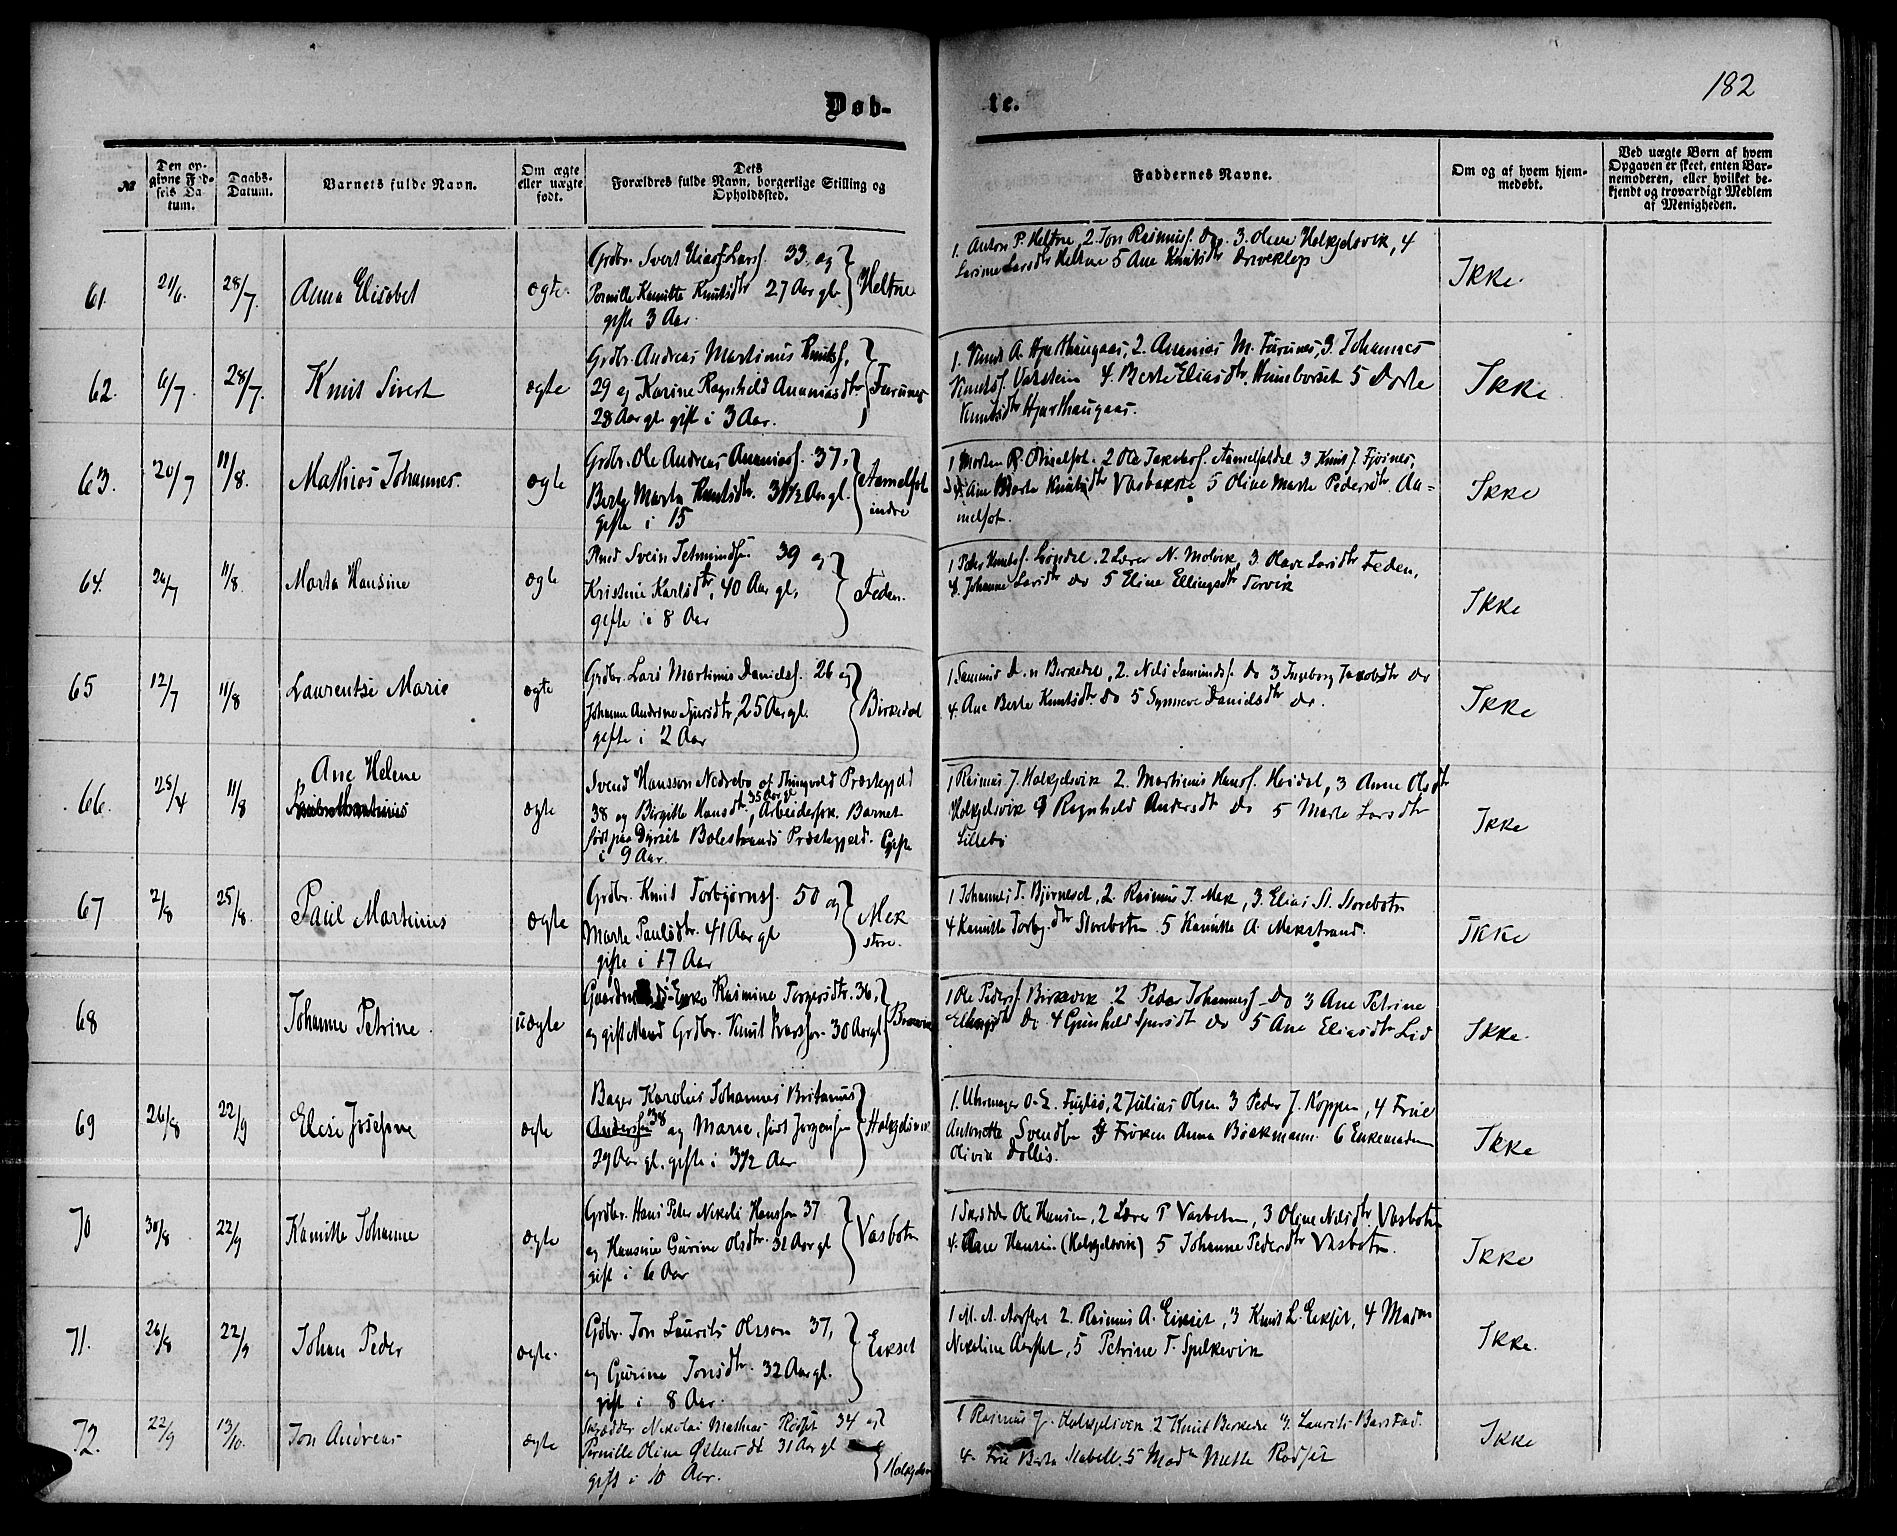 182
Døb-
te.
№
Den op-
givne Fød-
sels Da-
tum.
Daabs-
Datum.
Barnets fulde Navn.
Om ægte
eller uægte
født.
Dets
Forældres fulde Navn, borgerlige Stilling og
Opholdssted.
Faddernes Navne.
Om og af hvem hjem-
medøbt.
Ved uægte Børn af hvem
Opgaven er skeet, enten Bar-
nemoderen, eller hvilket be-
kjendt og troværdigt Medlem
af Menigheden.
61. 21/6. 28/7. Anna Elisabet ægte.
Grdbr. Sivert Larss. 33. og
Pernille Kamitte Knutsdtr 27 Aar gl. Heltne
gifte 3 Aar.
1. Anton P. Heltne, 2. Jon Rasmuss. Do. 3. Oline Holkjelsvik, 4
Larsdtr Heltne 5 Ane Knutsdtr Driveklep
Ikke.
62. 6/7. 28/7. Knut Sivert ægte
Grdbr. Andreas Martinus Knutss.
29 og Karine Ragnhild Ananiasdtr. Furunes
28 Aar gl. gift i 3 Aar.
1. Knut A. Hjarthaugaas, 2. Ananias M. Furunes, 3. Johannes
Knutss. Vatstein 4. Berte Eliasdtr. Huneborset 5 Dorte
Knutsdtr Hjarthaugaas.
Ikke
63. 20/7 11/8. Mathias Johannes. ægte
Grdbr. Ole Andreas Ananiass. 37,
Berte Marta Knutsdtr. 37½ Aar gl. Aamelfot
gifte i 15 indre
1 Morten P. 2 Ole Jakobss. Aamelfotdal 3 Knut J. Fjørnes,
4. Ane Marta Knutsdtr Vasbakke 5 Oline Marte Pedersdtr. Aa-
melfot.
Ikke
64. 26/7 11/8. Marta Hansine ægte
Svein 39 og
Kristine Karlsdtr, 40 Aar gl, Feden.
gifte i 8 Aar
1 Peder Knutss. 2 Lærer N. Molvik, 3. Olave Larsdtr Feden,
4. Johanne Larsdtr do 5 Eline Ellingsdtr Torvik
Ikke
65 12/7 11/8 Laurentse Marie ægte
Grdbr. Lars Martinus Daniels. 26 og
Johanne Andrine Sjursdtr, 25 Aar gl. Birkedal
gifte i 2 Aar
1 Birkedal, 2. Nils Samunds. Do 3 Ingeborg Jakobsdtr do
4. Ane Berte Knutsdtr. do 5 Synneve Danielsdtr do.
Ikke
66. 25/4 11/8 Ane Helene ægte
Svend Hansson Nedrebø af Præstegjeld
38 og Birgitte Hansdtr 35 Aar gl, Arbeidersfolk. Barnet
født paa Balestrands Præstegjeld. Gifte
i 9 Aar.
1 Rasmus J. Holkjelsvik 2. Martinus Hanss. Heidal, 3 Anne Olsdtr
Holkjelsvik 4 Ragnhild Andersdt do 5 Marte Larsdtr
Lillebø
Ikke
67 2/8 25/8. Paul Martinus ægte
Grdbr. Knut Torbjørnss. 50 og Mek
Marte Paulsdtr. 41 Aar gl store.
gifte i 17 Aar
1 Johannes T. Bjørnesel, 2. Rasmus J. Mek, 3. Elias St. Storebotn
4 Kamitte Torbj.dtr Storebotn 5 Kamitte A. Mekstrand.
Ikke
68 Johanne Petrine. uægte
Enke Rasmine 36,
og gift Mand Grdbr. Knut 30 Aar gl
1 Ole Peders. Birkevik 2 Peder Johannes. Do 3 Ane Petrine
do 4 Gunhild Sjursdt do 5 Ane Eliasdtr Lid
Ikke.
69 26/8 22/9 Elise Josefine ægte
Bager Karolus Johannes Britanus
Andersen 38 og Marie, født Jørgensen Holkjelsvik
29 Aar gl. gifte i 3½ Aar
1. Uhrmager O. E. Fuglsø, 2 Julius Olsen 3 Peder J. Koppen, 4 Frue
Antonette Svendsen 5 Frøken Anna Brækmann. 6 Enkemadam
Olivia Dolles.
Ikke
70 30/8 22/9 Kamitte Johanne ægte
Grdbr. Hans Peter Nikolai Hanssen 37
og Hansine Gurine Olsdtr. 31 Aar gl Vasbotn
gift i 6 Aar
1 Skrædder Ole Hansen, 2 Lærer P Vasbotn, 3 Oline Nilsdtr. Vasbotn
4. Ane Hansen (Holkjelsvik) 5 Johanne Pedersdtr Vasbotn.
Ikke
71. 26/8 22/9 Johan Peder ægte.
Gdbr. Jon Laurits Olsson 37,
og Gurine Jonsdtr. 32 Aar gl. Eikset
gift i 8 Aar.
1 M. A. Aarflot 2. Rasmus A. Eikset, 3 Knut L. Eikset, 4 Madam
Nikoline Aarflot, 5 Petrine T. Spilkevik
Ikke.
72. 22/9 13/10. Jon Andreas ægte
Skrædder Nikolai Mathias Rødset 34 og
Pernille Olina 31 Aar gl
gift i 10 Aar. Holkjelsv
1 Rasmus J. Holkjelsvik. 2 Knut Berkedal 3. Laurits Barstad.
4. Frue Berta Stabell. 5 Madm Mette Rødset
Ikke